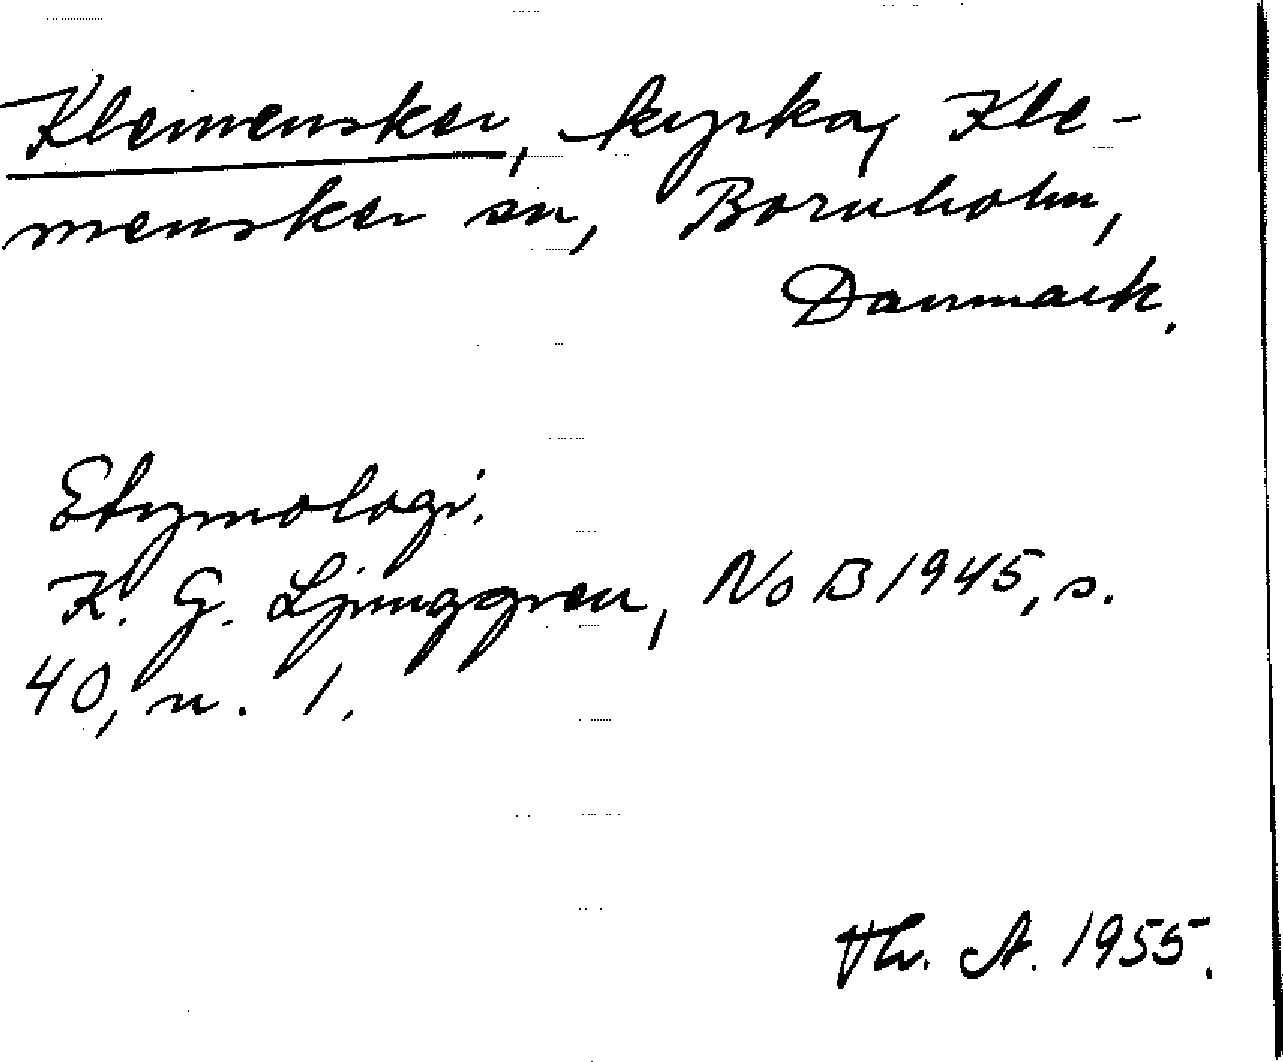 Klemensker, kyrka, Kle-
mensker sn, Bornholm,
Danmark.
Etymologi.
K. G. Ljunggren, NoB 1945, s.
40, n. 1.
Th. A. 1955.